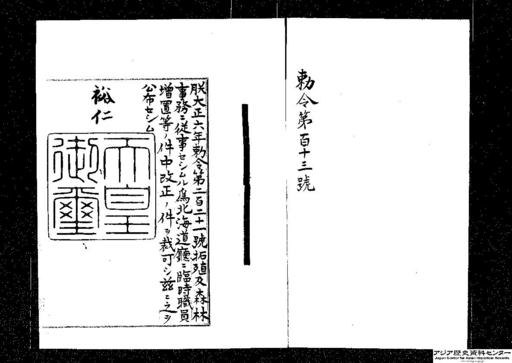 勅令第百十三號
朕大正六年勅令第二百二十一號拓殖及森林
事務ニ從事セシムル爲北海道廳ニ臨時職員
増置等ノ件中改正ノ件ヲ裁可シ茲ニ之ヲ
公布セシム
裕仁
天皇
御璽
アジア歴史資料センター
Japan Center for Asian Historical Records